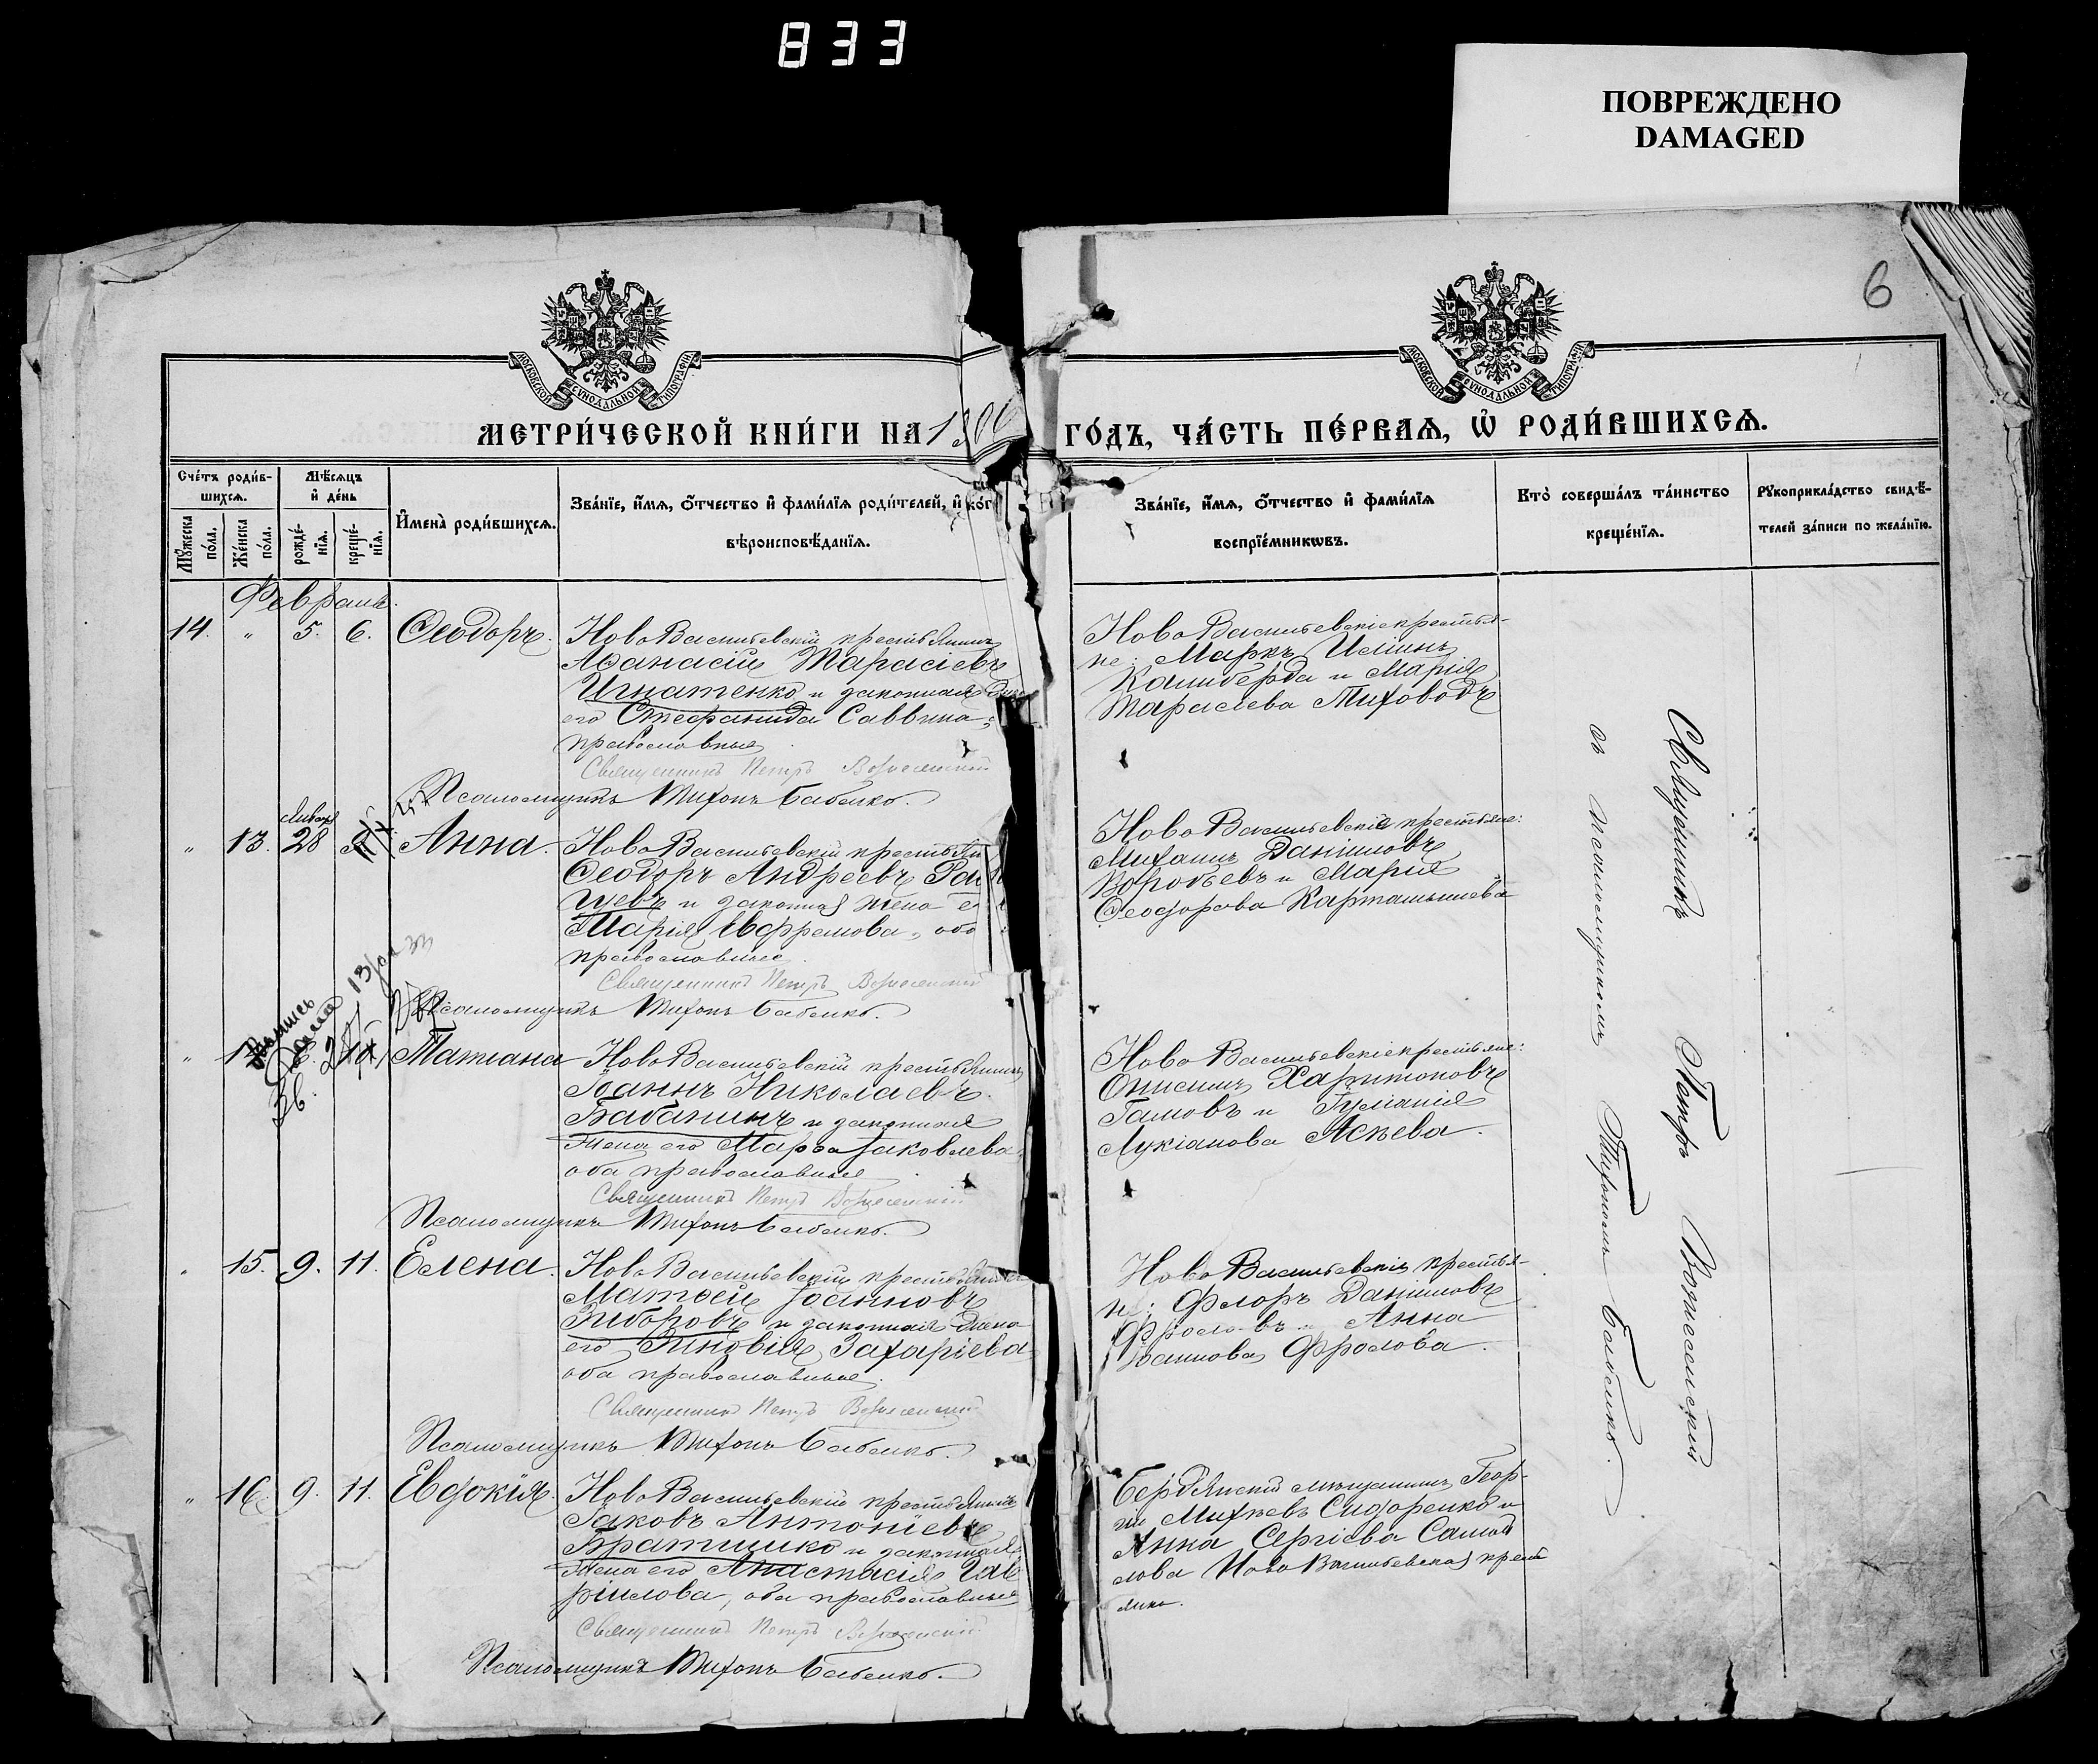 833
ПОВРЕЖДЕНО
DAMAGED
6
МОСКОВСКОЙ СѴНОДАЛЬНОЙ ТИПОГРАФІИ
МОСКОВСКОЙ СѴНОДАЛЬНОЙ ТИПОГРАФІИ
МЕТРИ́ЧЕСКОЙ КНИ́ГИ НА 1900 ГО́ДЪ, ЧА́СТЬ ПЕ́РВАѦ, Ѡ҆ РОДИ́ВШИХСѦ.
Сче́тъ роди́в-
шихсѧ.
Мѣ́сѧцъ
и҆ де́нь
Мꙋ́жеска
по́ла.
Же́нска
по́ла.
рожде́-
нїѧ.
креще́-
нїѧ.
И҆мена̀ роди́вшихсѧ.
Зва́нїе, и҆́мѧ, ѻ҆́тчество и҆ фами́лїѧ роди́телей, и҆ ко́г
вѣроисповѣ́данїѧ.
Зва́нїе, и҆́мѧ, ѻ҆́тчество и҆ фами́лїѧ
воспрїе́мникѡвъ.
Кто̀ соверша́лъ та́инство
креще́нїѧ.
Рꙋкоприкла́дство свидѣ́-
телей за́писи по жела́нїю.
Февраль.
14. " 5. 6. Ѳеодоръ.
НовоВасильевскій крестьянинъ
Аѳанасій Тарасіевъ
Игнатенко и законная жена
его Стефанида Саввина,
православные
Священникъ Петръ Вознесенскій
Псаломщикъ Тихонъ Бабенко.
НовоВасильевскіе крестья-
не: Маркъ
и Марія
Тарасіева Тиховодъ
Января
" 13. 28 Анна.
НовоВасильевскій крестьян
Ѳеодоръ Андреевъ
и законная жена е
Марія Ефремова, оба
православные.
Священникъ Петръ Вознесенскій
Псаломщикъ Тихонъ Бабенко.
НовоВасильевскіе крестьяне:
Михаилъ Даниловъ
Воробьевъ и Марія
Ѳеодорова Карташышева
Выпись
" Татіана
НовоВасильевскій крестьянинъ
Іоаннъ Николаевъ
Бабанинъ и законная
жена его Марѳа Іаковлева
оба православные
Священникъ Петръ Вознесенскій
Псаломщикъ Тихонъ Бабенко.
НовоВасильевскіе крестьяне:
Онисимъ Харитоновъ
Гамовъ и Іуліанія
Лукіанова Асѣева.
" 15. 9. 11. Елена.
НовоВасильевскій крестьянинъ
Матѳей Іоанновъ
Зиборовъ и законная жена
его Зиновія Захаріева
оба православные.
Священникъ Петръ Вознесенскій
Псаломщикъ Тихонъ Бабенко.
НовоВасильевскіе крестья-
не: Флоръ Даниловъ
Фроловъ и Анна
Іоаннова Фролова.
" 16. 9. 11. Евдокія.
НовоВасильевскій крестьянинъ
Іаковъ Антоніевъ
Братишко и законная
жена его Анастасія Гав
ріилова, оба православные
Священникъ Петръ Вознесенскій
Псаломщикъ Тихонъ Бабенко.
Бердянскій мѣщанинъ Геор-
гій Михѣевъ Сидоренко и
Анна Сергіева Самой
лова НовоВасильевская крест
янка.
Священникъ Петръ Вознесенскій
съ псаломщикомъ Тихономъ Бабенко.